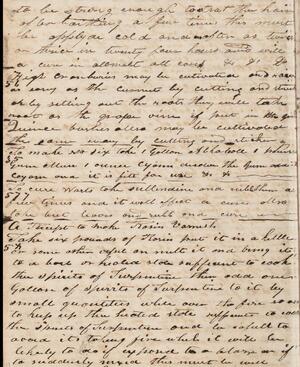 to be strong enough to eat the hair
of a time this must
be applyde cold and often as twice
or thrice in twenty four hours and will
a cure in almost all cases & &
56 High Cranburies may be cultivated and
as easy as the currnet by cutting and
or by setting out the roots they will take
root as the grape vine if put in the
Quince bushes also may be cultivated
the same way by cutting
55 to make No six take 1 Gallon Alchohole 1 pound
gum 1 ounce Cyan the gum and
Cyan and it is fit for use & &
57 to cure Warts take and rub them
times and it will a cure also
take leaves and rub and cure
A Receipt to Make Rosin Varnish
58 Take six pounds of Rosin put it in a kittle
or some other vessel on melt it and bring it
to a heat or heated state sufficient to cook
the Spirits of Turpentine then add one
Gallon of Spirits of Turpentine to it by
small quantities while over the fire so as
to keep up the heated state sufficient to cook
the Spirits of Turpentine and be carefull to
avoid its taking fire which it will be
likely to do if exposed to a blaze or if
to suddenly mixed this must be will